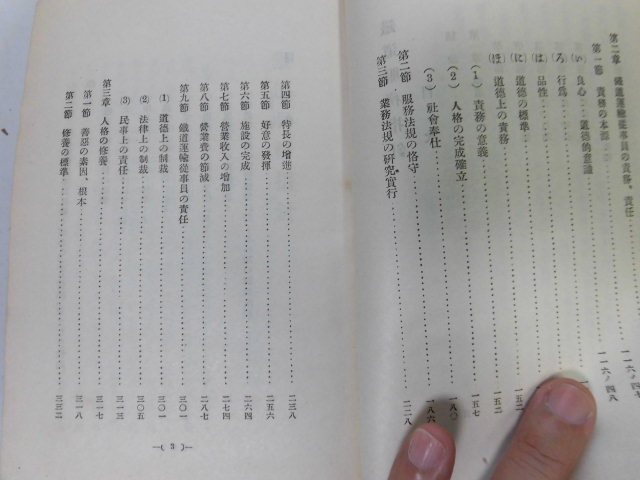 第二章 鐵道運輸從事員の責務、責任……一一六ノ四七
第一節 責務の本部……一一六ノ四八
(い) 良心、道德的意識……一
(ろ) 行爲……
(は) 品性……
(に) 道德の標準……
(ほ) 道德上の責務……一五二
(1) 責務の意義……一五七
(2) 人格の完成確立……一八〇
(3) 社會奉仕……一八六
第二節 服務法規の恪守……
第三節 業務法規の研究實行……二二八
第四節 特長の增進……二三八
第五節 好意の發揮……二五六
第六節 施設の完成……二六四
第七節 營業收入の增加……二七四
第八節 營業費の節減……二八七
第九節 鐵道運輸從事員の責任……三〇一
(1) 道德上の制裁……三〇一
(2) 法律上の制裁……三〇五
(3) 民事上の責任……三一三
第三章 人格の修養……三一七
第一節 善惡の素因、根本……三一八
第二節 修養の標準……三三二
—( 3 )—